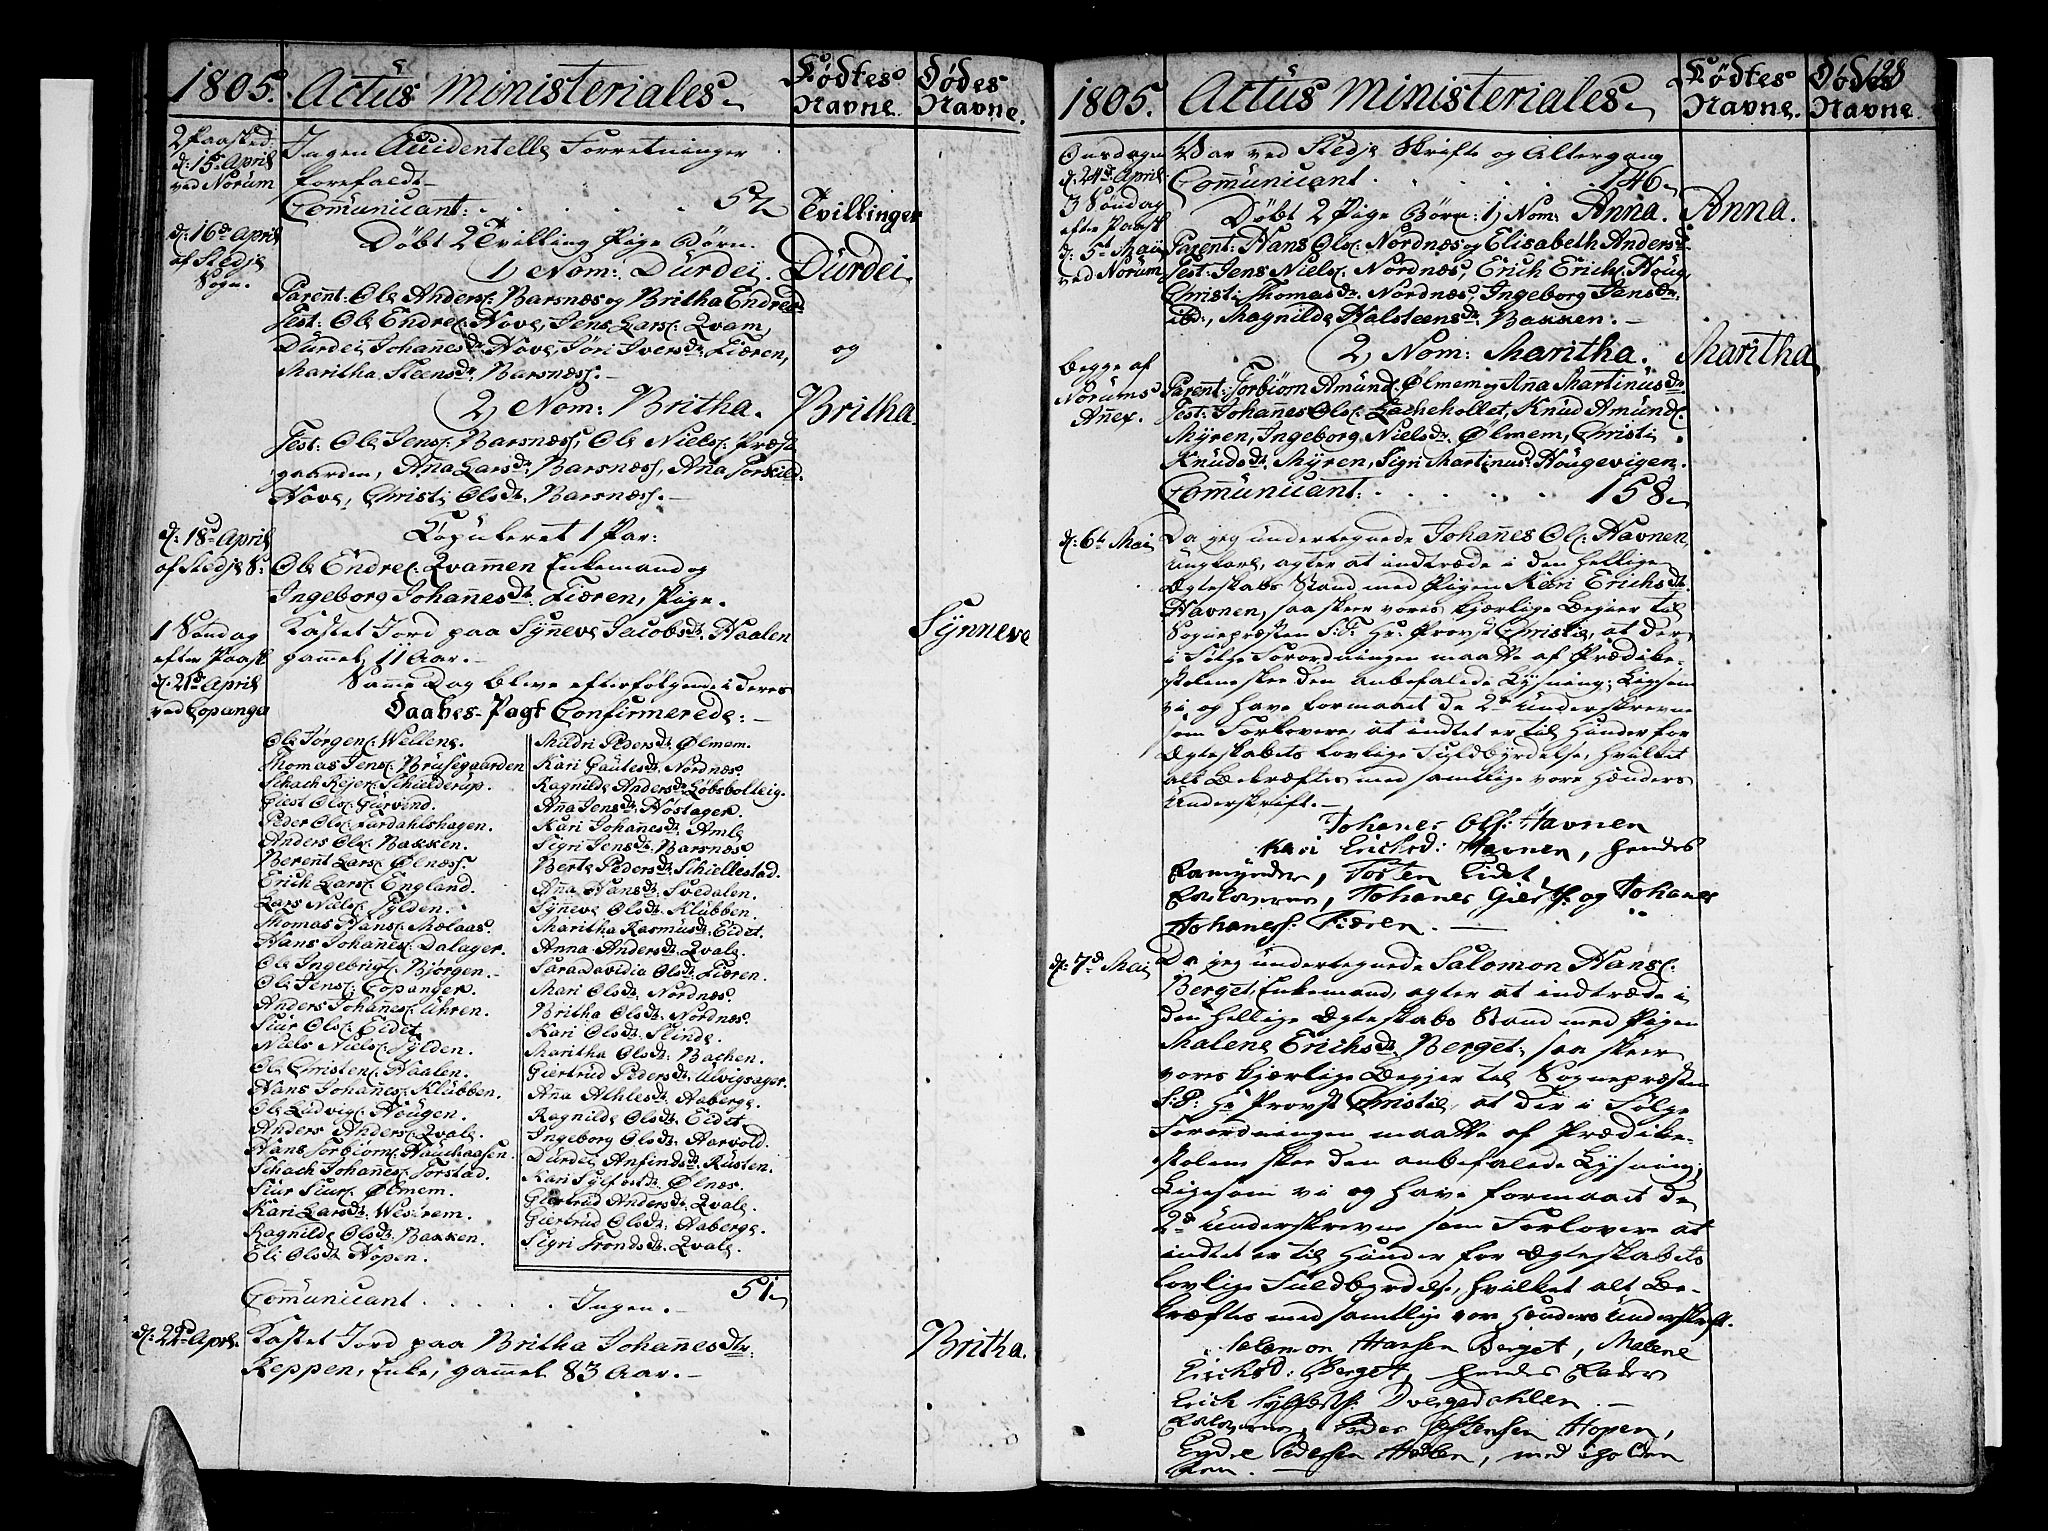 1805. Actus Ministeriales. Fødtes Navne. Dødes Navne.
2 Paasked.
d: 15de April
ved Norum
Ingen Accidentelle Forretninger
forefaldt.
Communicant: . . . . . . 52
d: 16de April
af Stedje
Sogn.
Døbt 2 Tvilling Pige Børn.
Tvillinger
1, Nom: Durdei.
Durdei
Parent: Ole Anders: Barsnæs og Britha Endresd
Test: Ole Endres: Nove, Jens Lars: Qvam,
Durdei Johannesdr: Nove, Jøri Iversdr: Fiæren,
og
Maritha Steensdr: Barsnæss.
2, Nom: Britha.
Britha.
Test: Ole Jens: Barsnæss, Ole Niels: Præste
gaarden, Anna Larsdr: Barsnæss, Ana Torkilds:
Nove, Christi Olsdr: Barsnæss.
d: 18de April
af Stedje S:
Copuleret 1 Par:
Ole Endres: Qvammen Enkemand og
Ingeborg Johannesdr: Fiæren, Pige.
1 Søndag
efter Paask
d: 21de April
ved Copanger
Kastet Jord paa Synneve Jacobsdr: Haalen
Synneve
gammel 11 Aar.
Samme Dag bleve efterfølgende i deres
Daabes-Pagt Confirmerede:
Ole Jørgens: Wellene.
Thomas Jens: Brusegaarden
Schach Rejer: Schielderup.
Giest Ols: Gurvend.
Peder Ols: Furdahlshagen.
Anders Ols: Bakken.
Berent Lars: Ølnæss.
Erich Lars: England.
Lars Niels: Sylden.
Thomas Hans: Mælaas.
Hans Johannes: Dalager.
Ole Ingebrigt: Bjørgen.
Ole Jens: Copanger.
Anders Johannes: Uhren.
Siur Ols: Eidet
Niels Niels: Sylden.
Ole Christens: Haalen.
Hans Johannes: Klubben.
Ole Ludvigs: Hougen.
Anders Anders: Qvale.
Hans Torbiorn: Hauchaasen.
Schach Johanes: Torstad.
Siur Siurs: Ølmem.
Kari Larsdr: Westrem.
Ragnilde Olsdr: Bakken.
Eli Olsdr: Hopen.
Mildri Pedersdr: Ølmem.
Kari Gautesdr: Nordnæs.
Ragnilde Andersdr: Løbsbolleig.
Ana Jensdr: Nøstager.
Kari Johanesdr: Amle
Sigri Jensdr: Barsnæs.
Berte Pedersdr: Schiellestad.
Ana Hansdr: Svedalen.
Synneve Olsdr: Klubben.
Maritha Rasmusdr: Eidet.
Anna Andersdr: Qvale.
Sara Davidia Olsdr: Fiæren.
Mari Olsdr: Nordnæs.
Britha Olsdr: Nordnæs.
Kari Olsdr: Slinde.
Maritha Olsdr: Bachen.
Giertrud Pedersdr: Ulvigsager.
Ana Athlesdr: Aaberge.
Ragnilde Olsdr: Eidet
Ingeborg Olsdr: Aarvold.
Durdei Anfindsdr: Rusten.
Kari Sjefrsdr: Ølnæs.
Giertrud Andersdr: Qvale.
Giertrud Olsdr: Aaberge.
Sigri Trondsdr: Qvale.
51
Communicant . . . . . Ingen.
d: 22de April.
Kastet Jord paa Britha Johannesdtr:
Britha.
Reppen, Enke, gammel 83 Aar.
1805. Actus Ministeriales. Fødtes Navne. Dødes Navne.
Onsdagen
d: 24de April
Var ved Stedje Skrifte og Altergang
Communicant . . . . . . 146
3 Søndag
efter Paask
d: 5te Maii
ved Norum
Døbt 2 Pige Børn: 1, Nom: Anna.
Anna.
Parent: Hans Ols: Nordnæs og Elisabeth Andersd.
Test: Jens Niels: Nordnæs, Erich Erichs: Houg
Christi Thomasdr: Nordnæs, Ingeborg Jensdr:
ibd:, Magnilde Halsteensdr: Bakken.
2, Nom: Maritha.
Maritha
Begge af
Norums
Anex.
Parent: Torbiørn Amund: Ølmem og Ana Martinusdr
Test: Johannes Ols: Lachehollet, Knud Amund:
Myren, Ingeborg Nielsdr: Ølmem, Christi
Knudsdr: Myren, Sigri Martinusd: Hougevigen.
Communicant: . . . . . 158
d: 6te Mai
Da jeg undertegnede Johannes Ols: Havnen,
Ungkarl, agter at indtræde i den hellige
Ægteskabs Stand med Pigen Kari Erichsdr:
Havnen, saa skeer vores kjærlige Begjer til
Sognepræsten S:T: Hr: Provst Christie, at der
i Følge Forordningen maatte af Prædike-
stolen skee den anbefalede Lysning; Ligesom
vi og have formaaet de 2de underskrevne
som Forlovere, at indtet er til Hinder for
Ægteskabets lovlige Fuldbyrdelse, hvilket
alt bekræftes med samtlige vore Hænders
Underskrift.
Johanes Ols: Havnen
Kari Ericksd: Havnen, hendes
Formynder, Tosten Eidet,
Forloverne, Johanes Giertss: og Johanes
Johaness: Fiæren.
d: 7de Mai
Da jeg undertegnede Salomon Hans:
Berget, Enkemand, agter at indtræde i
den hellige Ægteskabs Stand med Pigen
Malene Erichsdr: Berget, saa skeer
vores kjærlige Begjer til Sognepræsten
S:T: Hr: Provst Christie, at der i Følge
Forordningen maatte af Prædike-
stolen skee den anbefalede Lysning;
Ligesom vi og have formaaet de
2de underskrevne som Forlovere at
indtet er til Hinder for Ægteskabets
lovlige Fuldbyrdelse, hvilket alt be-
kræftes med samtlige vore Hænders Underskrift.
Salamon Hansen Berget, Malene
Ericksd: Berget, hendes Fader
Erick Dvergedahlen.
Forloverne, Peder Hopen,
Endre Pedersen, med paaholden
Pen.